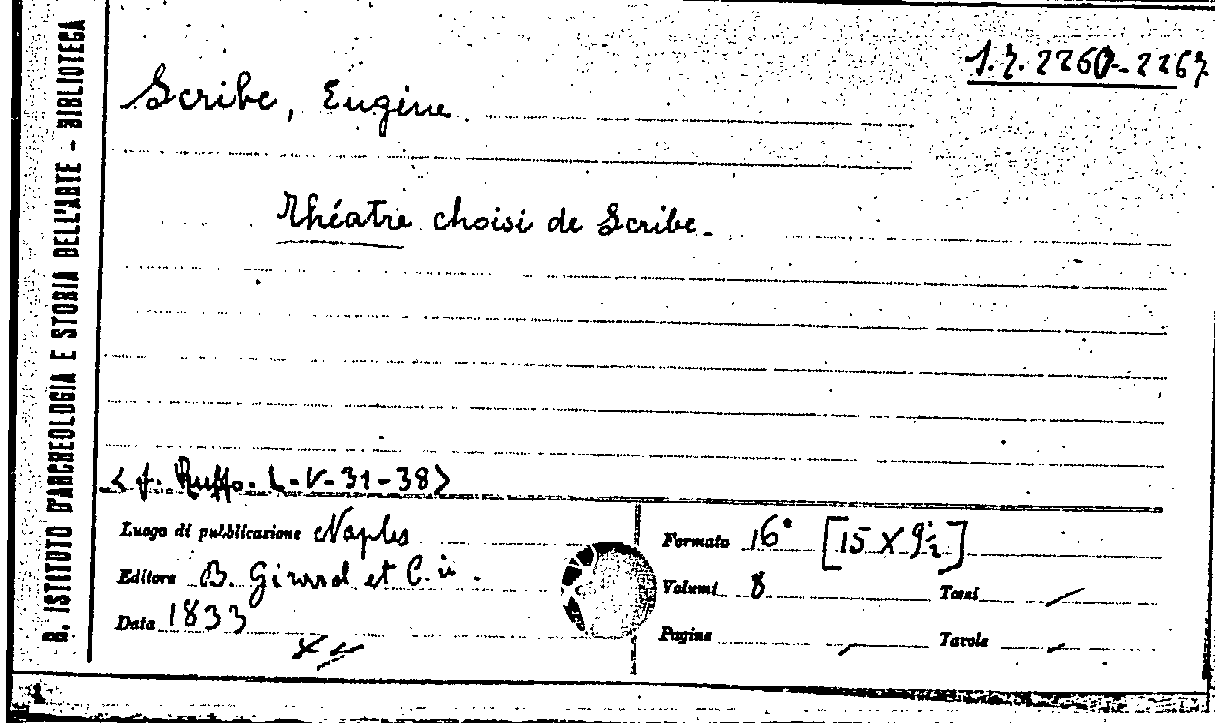 R. ISTITUTO D'ARCHEOLOGIA E STORIA DELL'ARTE - BIBLIOTECA
1.7.2260-2267
Scribe, Eugène.
Théatre choisi de Scribe.
<f. Ruffo. L-V-31-38>
Luogo di pubblicazione Naples
Editore B. Girard et C.ie.
Data 1833
Formato 16° [15 X 9½]
Volumi 8 Tomi /
Pagine / Tavole /